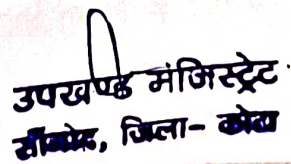 उपखण्ड मंजिस्ट्रेट
सांगोद, जिला- कोटा